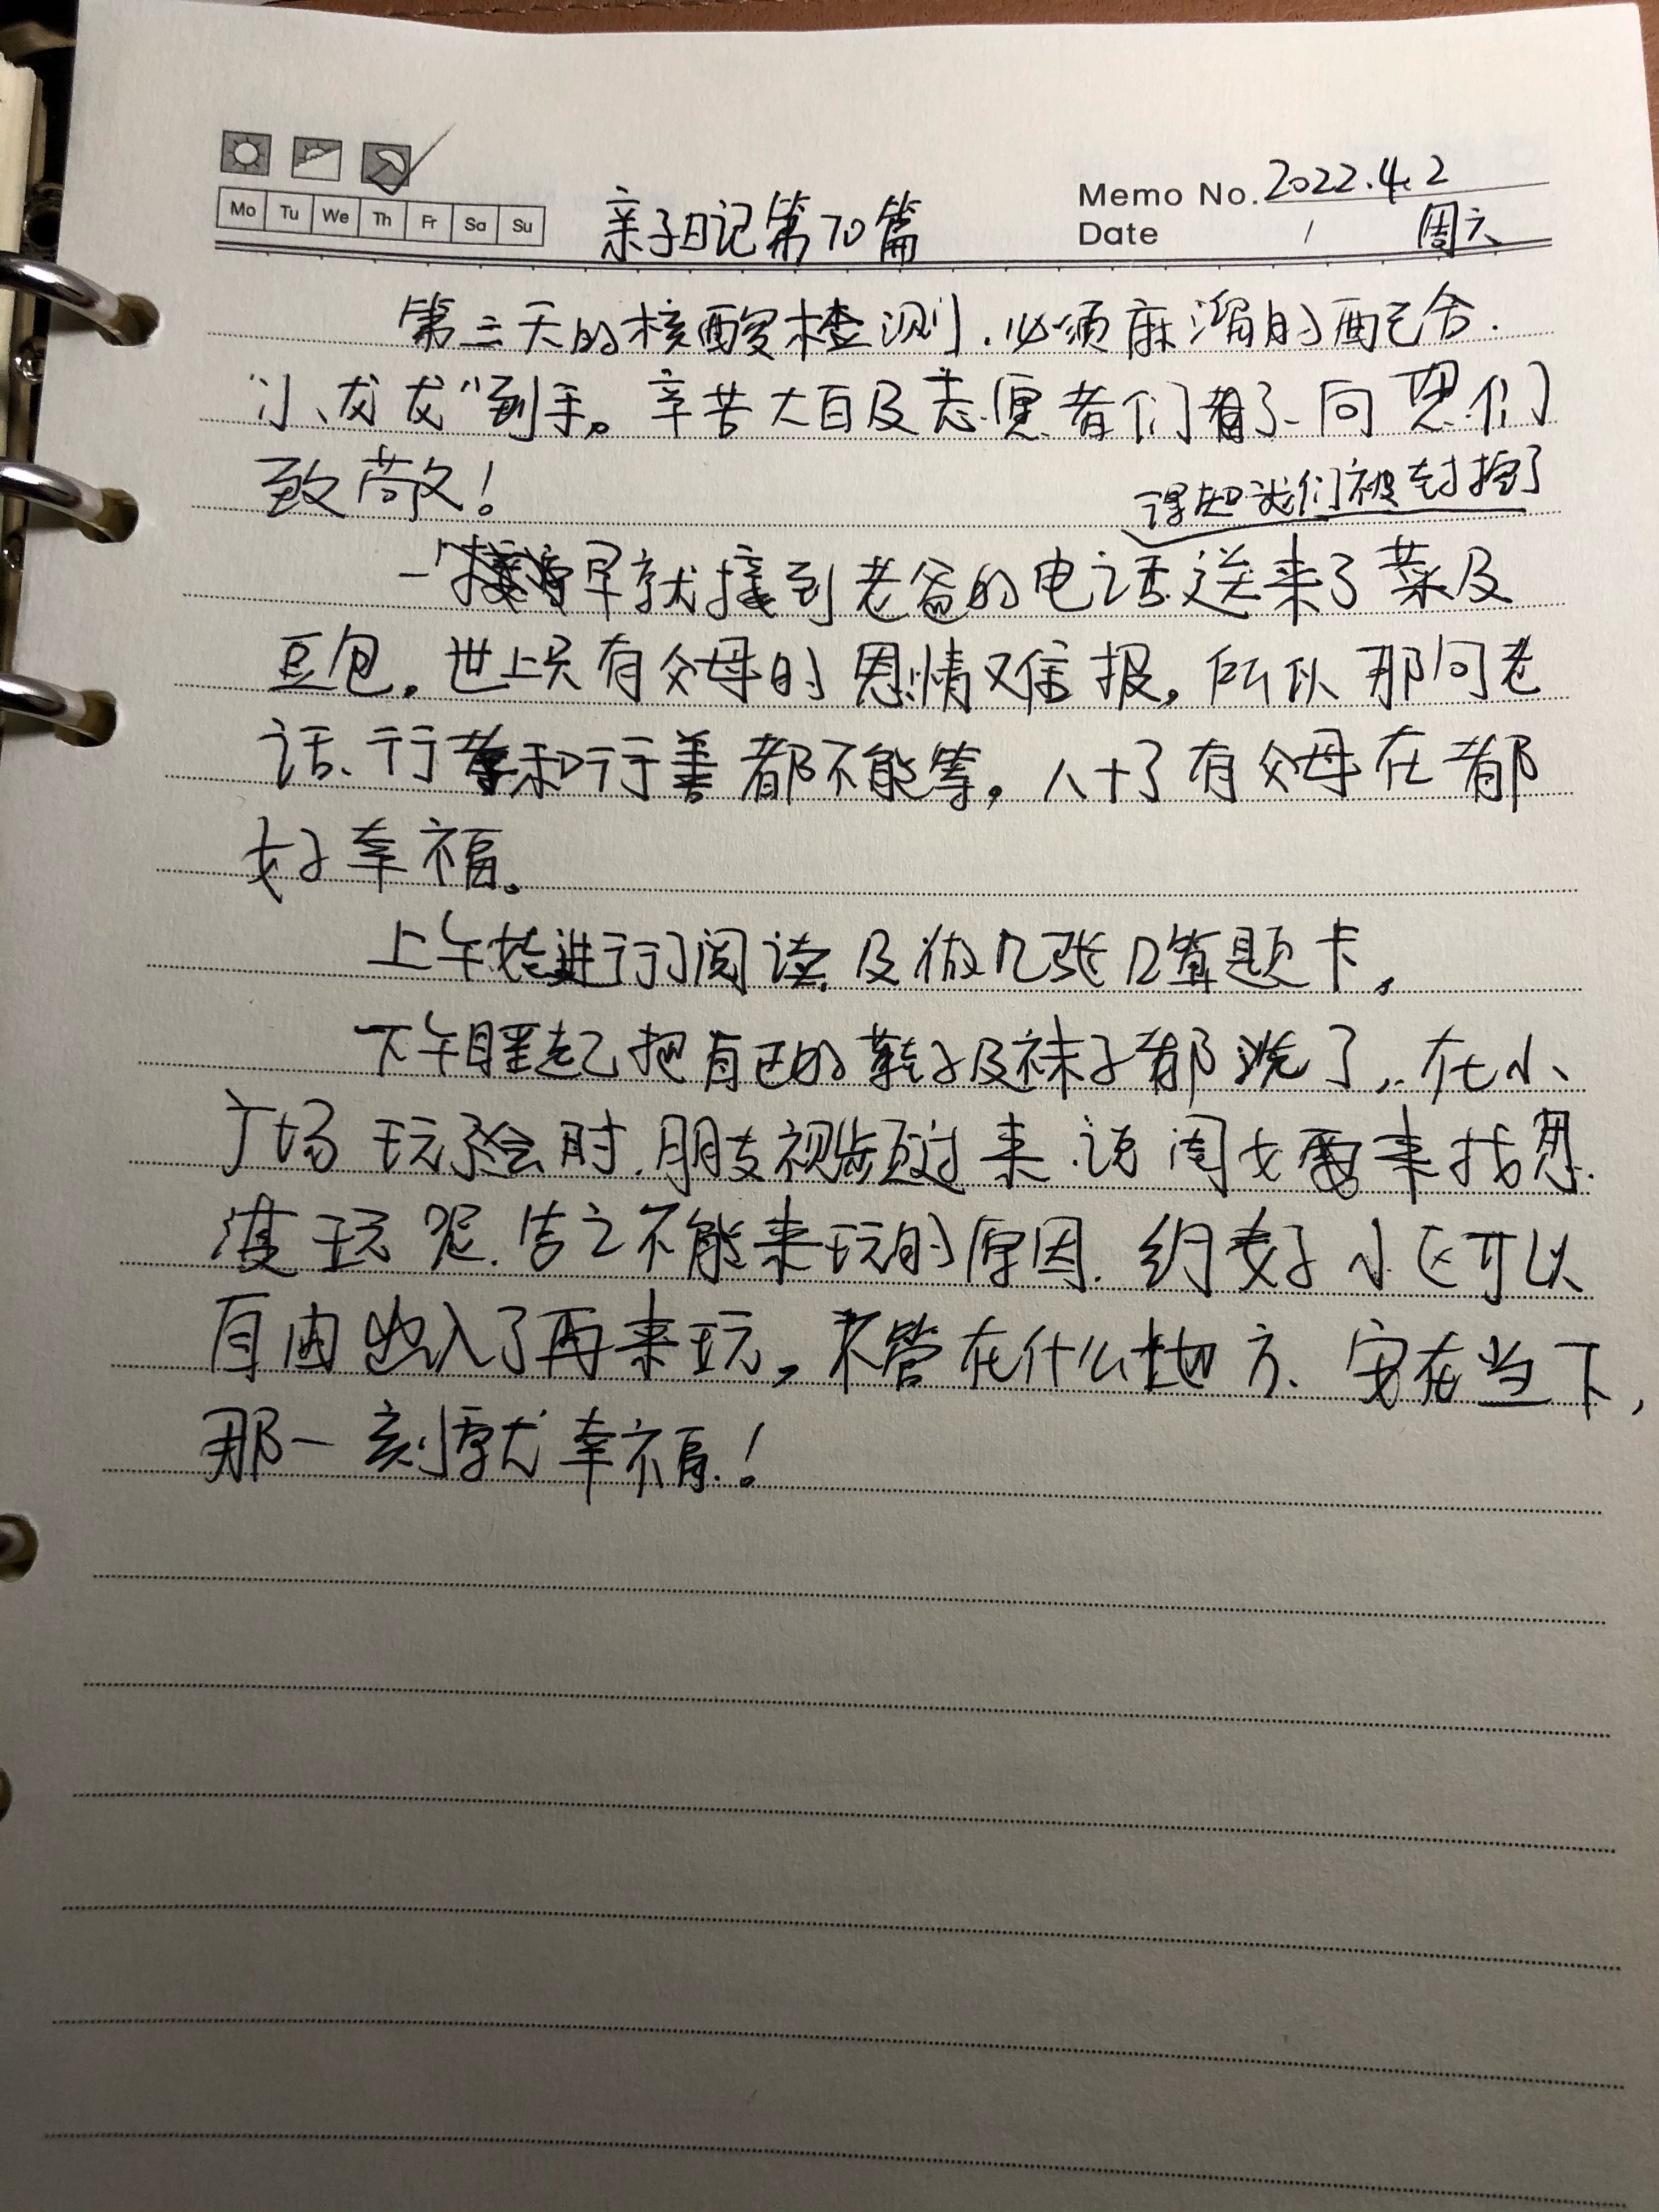 Mo Tu We Th Fr Sa Su
亲子日记第70篇
Memo No. 2022.4.2
Date / 周六
第三天的核酸检测,必须麻溜的配合.
"小龙龙"到手。辛苦大白及志愿者们了、向您们
致敬!
得知我们被封控了
一早就接到老爸的电话送来了菜及
豆包。世上只有父母的恩情难报,所以那句老
话、行孝和行善都不能等。八十了有父母在都
好幸福。
上午进行阅读及做几张口算题卡。
下午睡起把自己的鞋子及袜子都洗了,在小
广场玩会时,朋友视频过来、说闺女要来找恩
溪玩呢.告之不能来玩的原因.约好小区可以
自由出入了再来玩。不管在什么地方、安在当下,
那一刻就幸福!